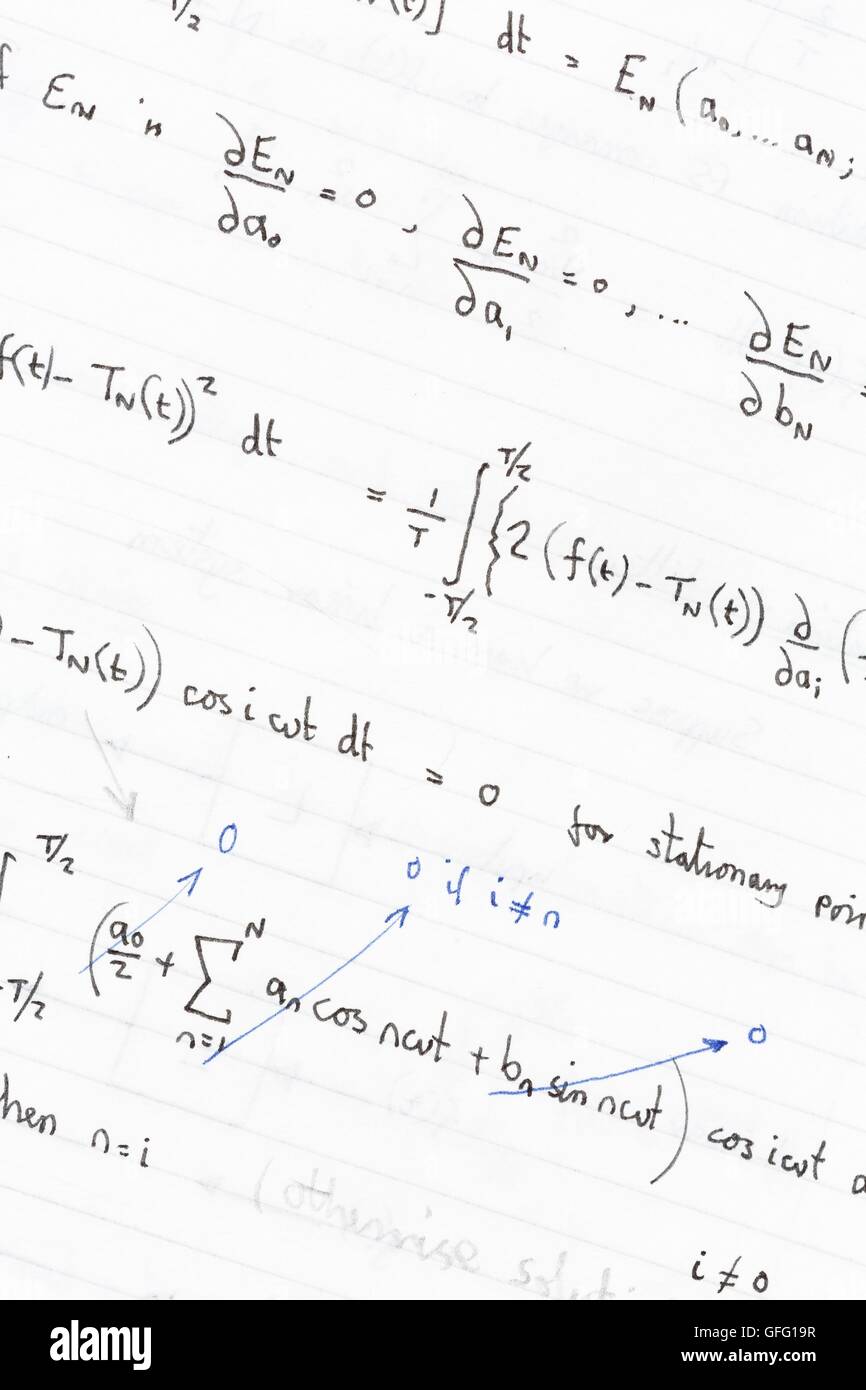 T/2 (t)] dt = E_N (a_0, ... a_N;
f E_N is ∂E_N/∂a_0 = 0, ∂E_N/∂a_1 = 0, ... ∂E_N/∂b_N =
f(t) - T_N(t))² dt = 1/T ∫_{-T/2}^{T/2} {2 (f(t) - T_N(t)) ∂/∂a_i (
) - T_N(t)) cos iωt dt = 0 for stationary poin
0
0 if i ≠ n
0
∫_{-T/2}^{T/2} (a_0/2 + Σ_{n=1}^{N} a_n cos nωt + b_n sin nωt) cos iωt d
hen n = i
i ≠ 0
alamy
Image ID: GFG19R
www.alamy.com